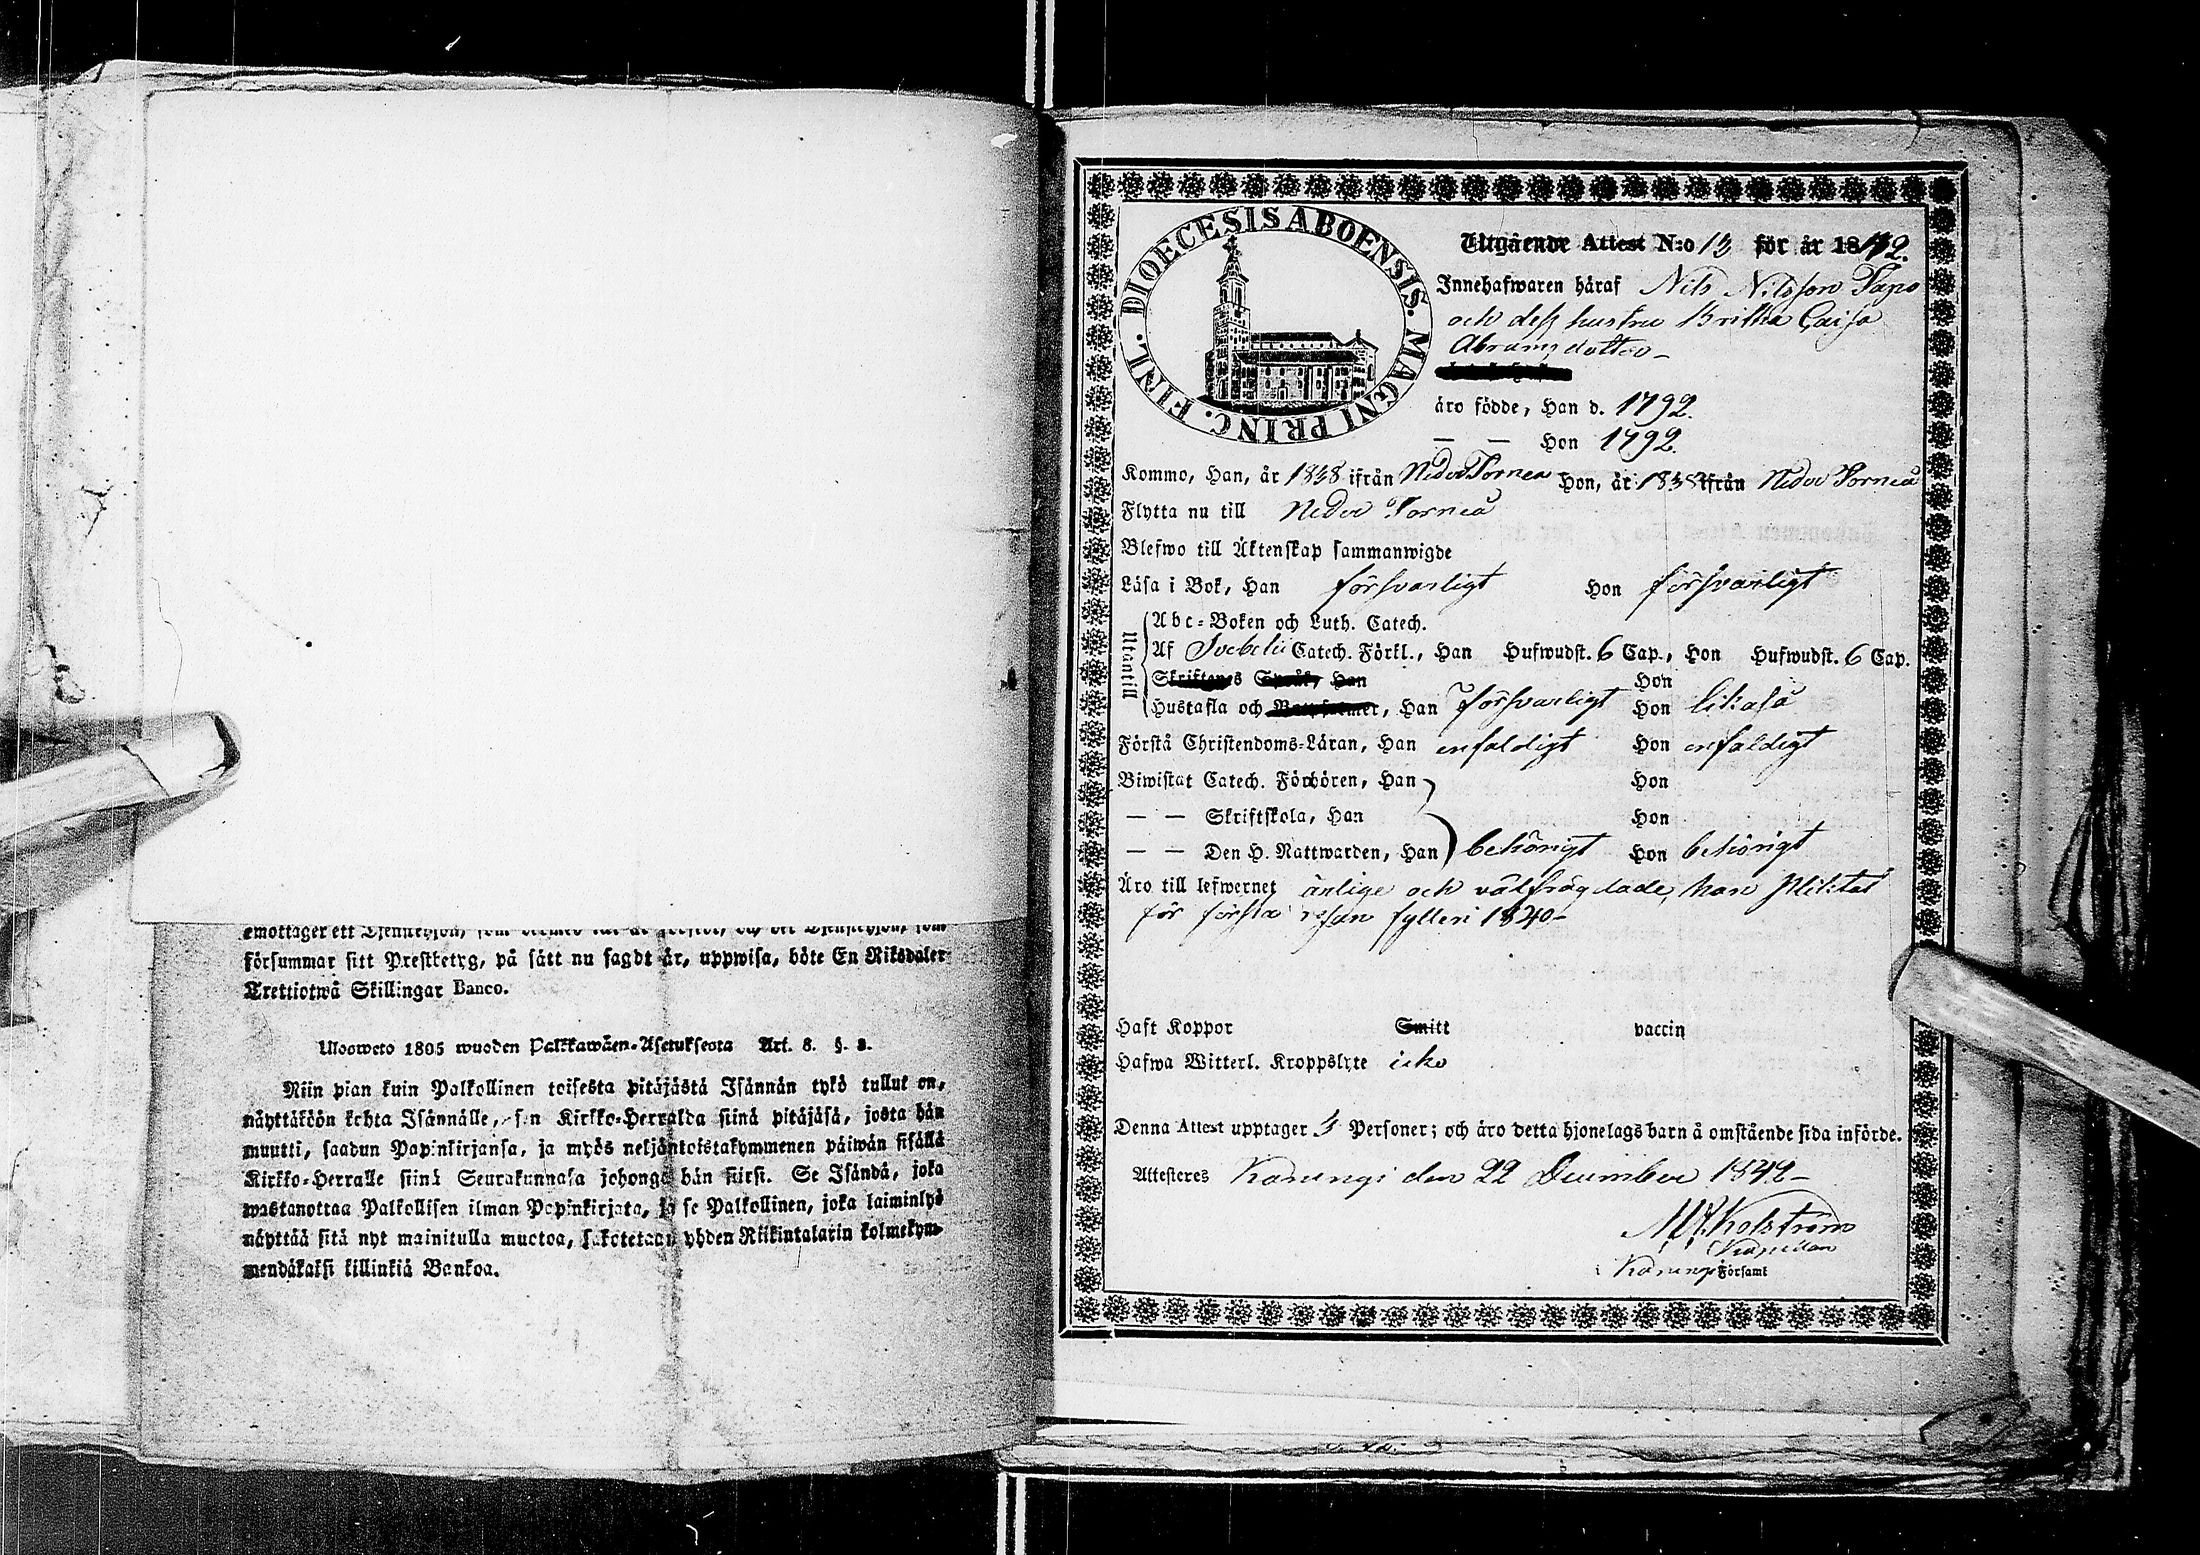 försummar sitt Prestbetyg, på sätt nu sagdt är, uppwisa, böte En Riksdaler
Trettiotwå Skillingar Banco.
Ulosweto 1805 wuoden Palkkawäen-Asetuksesta Art. 8. §. 2.
Niin pian kuin Palkollinen toisesta pitäjästä Isännän tykö tullut on,
näyttäköön kohta Isännälle, sen Kirkko-Herralda siinä pitäjäsä, josta hän
muutti, saadun Papinkirjansa, ja myös neljäntoistakymmenen päiwän sisällä
Kirkko-Herralle siinä Seurakunnasa johonga hän siirsi. Se Isändä, joka
wastanottaa Palkollisen ilman Papinkirjata, ja se Palkollinen, joka laiminlyö
näyttää sitä nyt mainitulla muotoa, sakotetaan yhden Riikintalarin kolmekym-
mendäkaksi killinkiä Bankoa.
DIOECESIS ABOENSIS. MAGNI PRINC. FINL.
Utgående Attest N:o 13 för år 1842.
Innehafwaren häraf Nils Nilsson Tapo
och dess hustru Britha Caisa
Abramsdotter
äro födde, Han d. 1792.
— — Hon 1792.
Kommo, Han, år 1838 ifrån Neder Tornea Hon, år 1838 ifrån Neder Torneå
Flytta nu till Neder Torneå
Blefwo till Äktenskap sammanwigde
Läsa i Bok, Han försvarligt Hon försvarligt
Utantill
Abc-Boken och Luth. Catech.
Af Svebelii Catech. Förkl., Han Hufwudst. 6 Cap., Hon Hufwudst. 6 Cap.
Skriftenes Språk, Han Hon
Hustafla och Botpsalmer, Han försvarligt Hon likaså
Förstå Christendoms-Läran, Han enfaldigt Hon enfaldigt
Biwistat Catech. Förhören, Han Hon
— — Skriftskola, Han Hon
— — Den H. Nattwarden, Han behörigt Hon behörigt
Äro till lefwernet änlige och välfrägdade, han pliktat
för första resan fylleri 1840
Haft Koppor Smitt vaccin
Hafwa Witterl. Kroppslyte icke
Denna Attest upptager 3 Personer; och äro detta hjonelags barn å omstående sida införde.
Attesteres Karungi den 22 December 1842
Kolström
Kapellan
i Karungi Församl